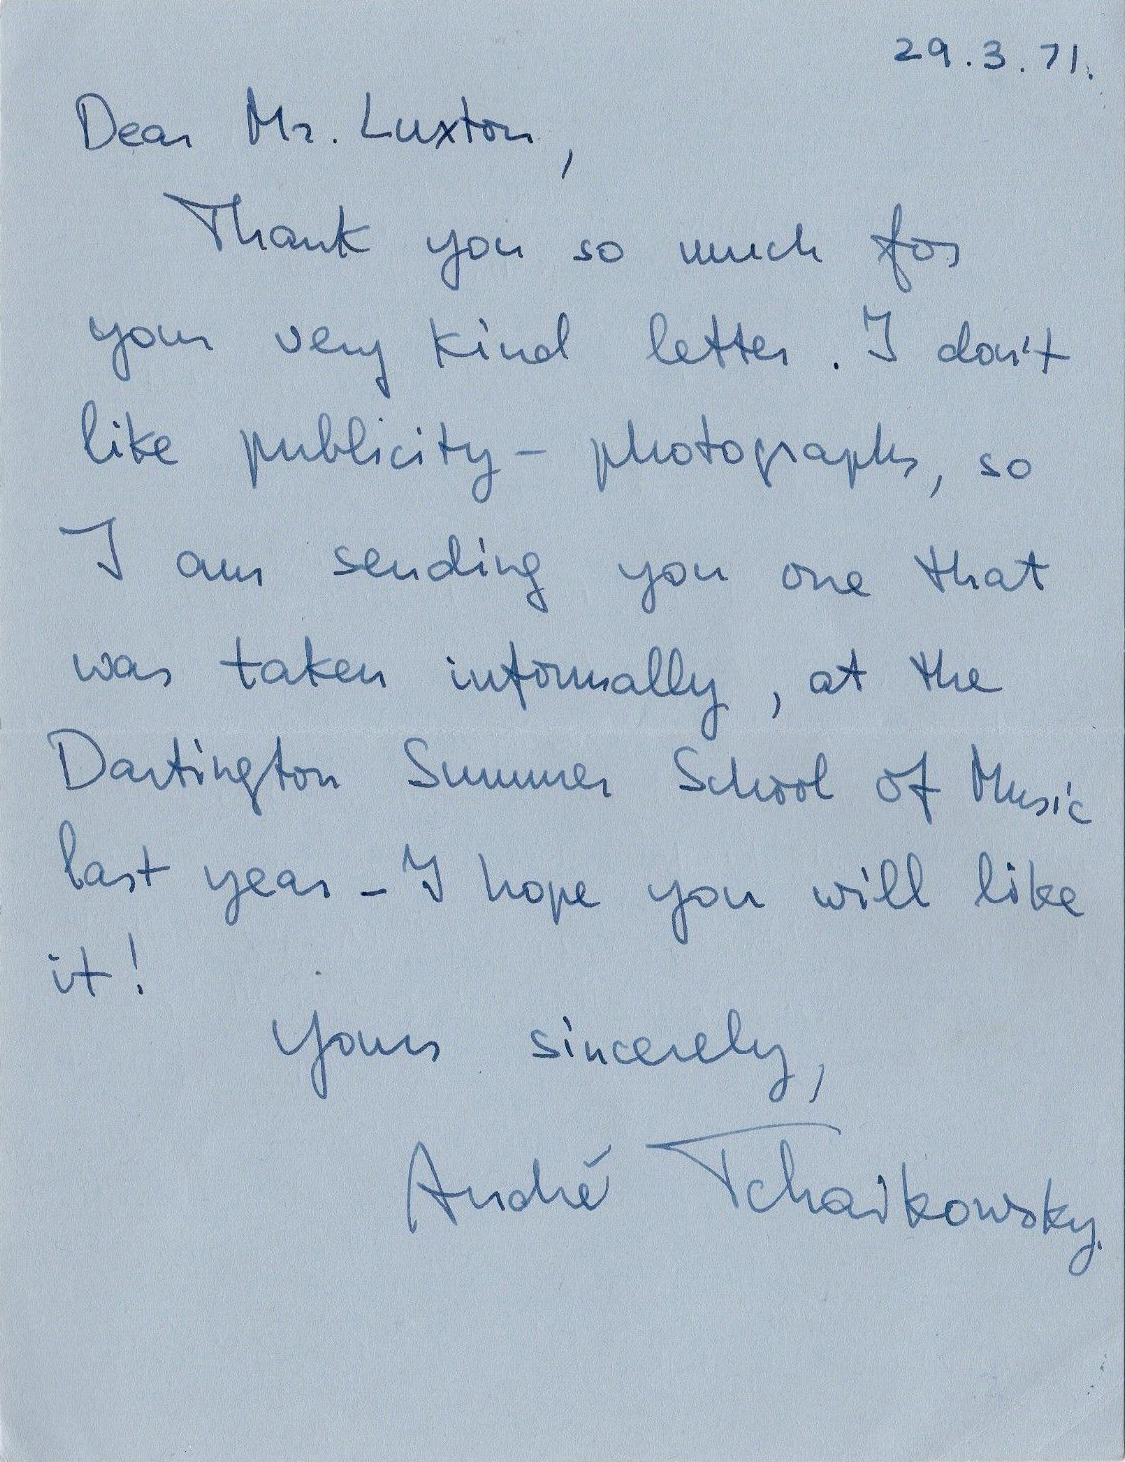 29.3.71.
Dear Mr. Luxton,
Thank you so much for
your very kind letter. I don't
like publicity - photographs, so
I am sending you one that
was taken informally, at the
Dartington Summer School of Music
last year - I hope you will like
it!
Yours sincerely,
André Tchaikowsky.